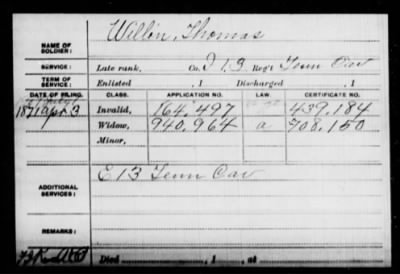 NAME OF SOLDIER: Willin, Thomas
SERVICE: Late rank, Co. I 13 Reg't Tenn Cav
TERM OF SERVICE: Enlisted , 1 Discharged , 1
DATE OF FILING. CLASS. APPLICATION NO. LAW. CERTIFICATE NO.
1871 Apr 3 Invalid, 164,497 439,184
Widow, 940,964 a 708,150
Minor,
ADDITIONAL SERVICES: E 13 Tenn Cav
REMARKS:
Died , 1 , at